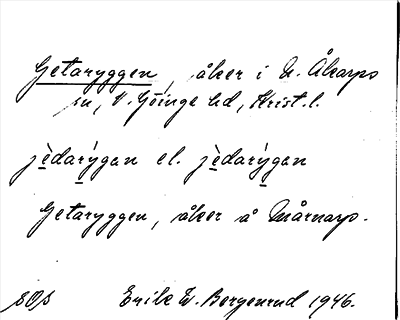 Getaryggen, åker i N. Åkarps
sn, V. Göinge hd, Krist. l.
jèdarýgan el. jèdarýgan
Getaryggen, åker å Mårnarp.
SOS Erik W. Bergenrud 1946.